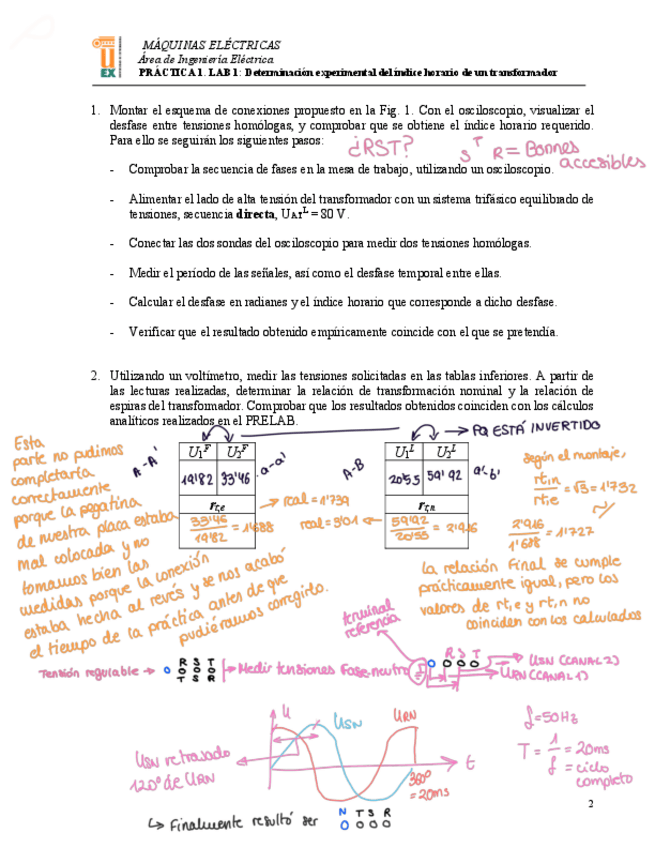 MÁQUINAS ELÉCTRICAS
Área de Ingeniería Eléctrica
PRÁCTICA 1. LAB 1: Determinación experimental del índice horario de un transformador
1. Montar el esquema de conexiones propuesto en la Fig. 1. Con el osciloscopio, visualizar el
desfase entre tensiones homólogas, y comprobar que se obtiene el índice horario requerido.
Para ello se seguirán los siguientes pasos:
¿RST?
S T R = Bornes
accesibles
- Comprobar la secuencia de fases en la mesa de trabajo, utilizando un osciloscopio.
- Alimentar el lado de alta tensión del transformador con un sistema trifásico equilibrado de
tensiones, secuencia directa, U_AT^L = 80 V.
- Conectar las dos sondas del osciloscopio para medir dos tensiones homólogas.
- Medir el período de las señales, así como el desfase temporal entre ellas.
- Calcular el desfase en radianes y el índice horario que corresponde a dicho desfase.
- Verificar que el resultado obtenido empíricamente coincide con el que se pretendía.
2. Utilizando un voltímetro, medir las tensiones solicitadas en las tablas inferiores. A partir de
las lecturas realizadas, determinar la relación de transformación nominal y la relación de
espiras del transformador. Comprobar que los resultados obtenidos coinciden con los cálculos
analíticos realizados en el PRELAB.
→ PQ ESTÁ INVERTIDO
Esta
parte no pudimos
completarla
correctamente
porque la pegatina
de nuestra placa estaba
mal colocada y no
tomamos bien las
medidas porque la conexión
estaba hecha al revés y se nos acabó
el tiempo de la práctica antes de que
pudiéramos corregirlo.
A-A'
U1^F U2^F
19'82 33'46
a-a'
r_t,e
33'46/19'82 = 1'688
→ real = 1'739
A-B
U1^L U2^L
20'55 59'92
a'-b'
r_t,n
59'92/20'55 = 2'916
real = 3'01 ←
Según el montaje,
rt,n/rt,e = √3 = 1'732
2'916/1'688 = 1'727
La relación final se cumple
prácticamente igual, pero los
valores de rt,e y rt,n no
coinciden con los calculados
terminal
referencia
Tensión regulable → O
R S T
O O O
T S R
→ Medir tensiones fase-neutro
R S T
O O O O
→ USN (CANAL 2)
→ URN (CANAL 1)
U
USN
URN
t
360º
= 20ms
USN retrasado
120º de URN
f = 50Hz
T = 1/f = 20ms
= ciclo
completo
↳ Finalmente resultó ser
N T S R
O O O O
2